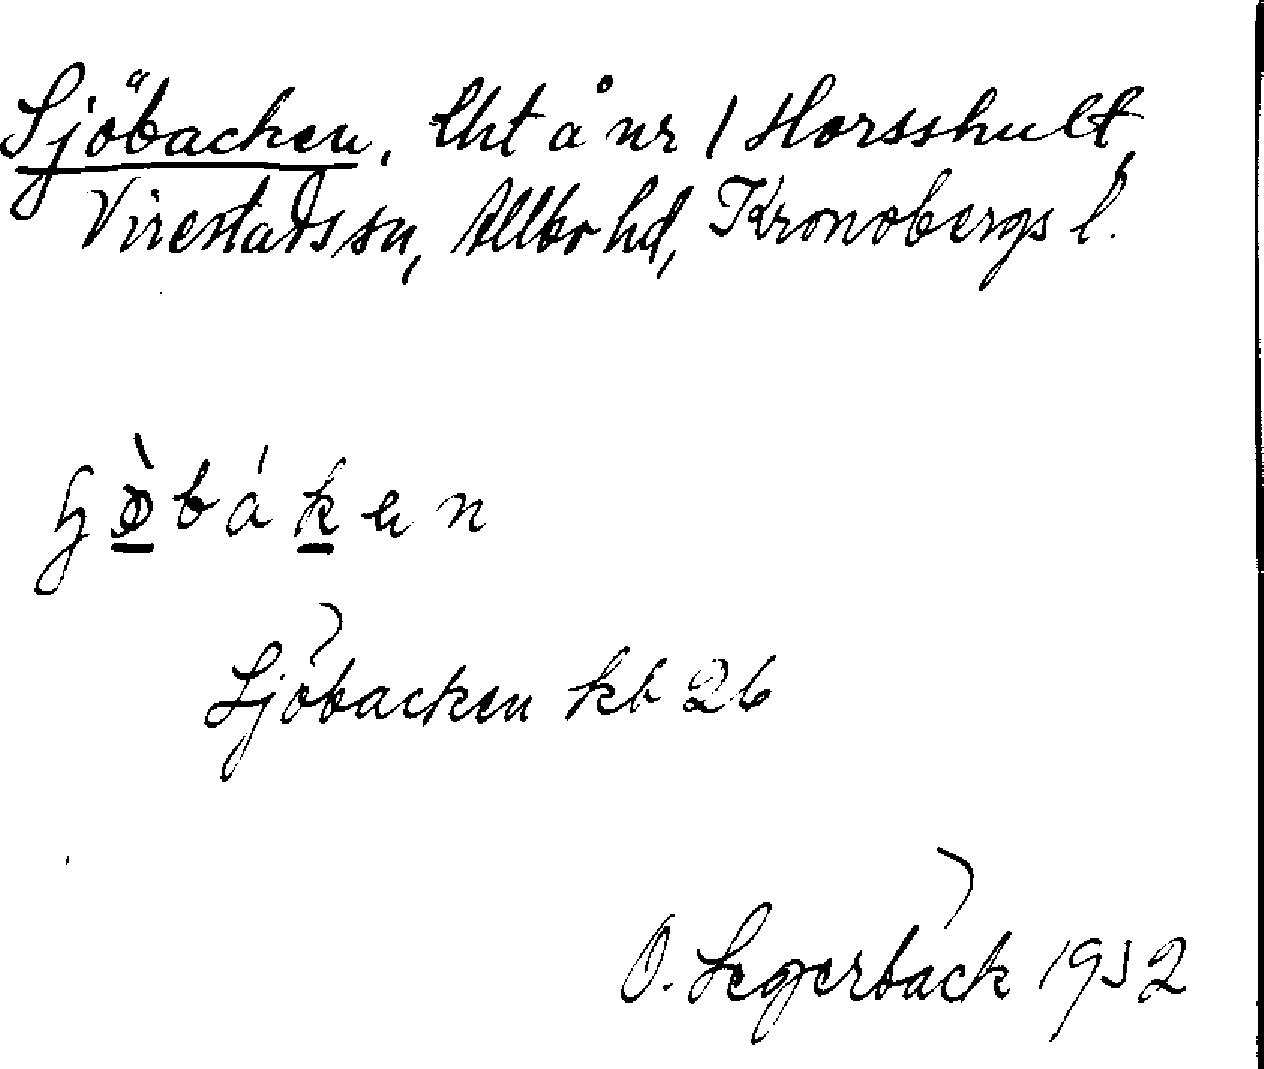 Sjöbacken, lht å nr 1 Horsshult,
Virestads sn, Allbo hd, Kronobergs l.
Sjöbacken kb 26
O. Segerbäck 1932